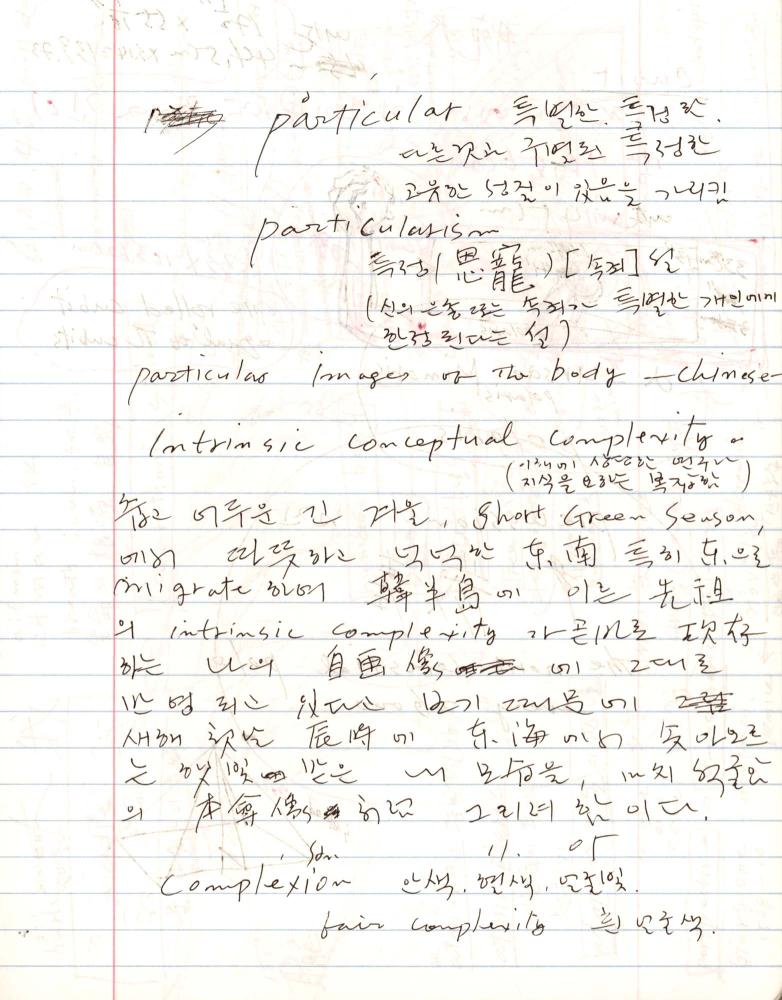 particular 특별한. 특검한.
다른것과 구별된 특정한
고유한 성질이 있음을 가리킴
particularism
특정(恩寵) [속죄] 설
(신의 은총 또는 속죄가 특별한 개인에게
한정된다는 설)
particular images of the body — Chinese
Intrinsic conceptual complexity
(이해에 상당한 연구나
지식을 요하는 복잡함)
춥고 어두운 긴 겨울, Short Green Season,
에서 따뜻하고 넉넉한 东南 특히 东으로
migrate 하여 韓半島에 이른 先祖
의 intrinsic complexity가 곧바로 現存
하는 나의 自画像에 그대로
반영되고 있다고 보기 때문에
새해 첫날 辰時에 东海에서 솟아오르
는 햇빛 받은 내 모습을, 마치 석굴암
의 本尊像처럼 그리려 함이다.
son 11. 05
Complexion 안색. 혈색. 얼굴빛.
fair complexity 흰 얼굴색.